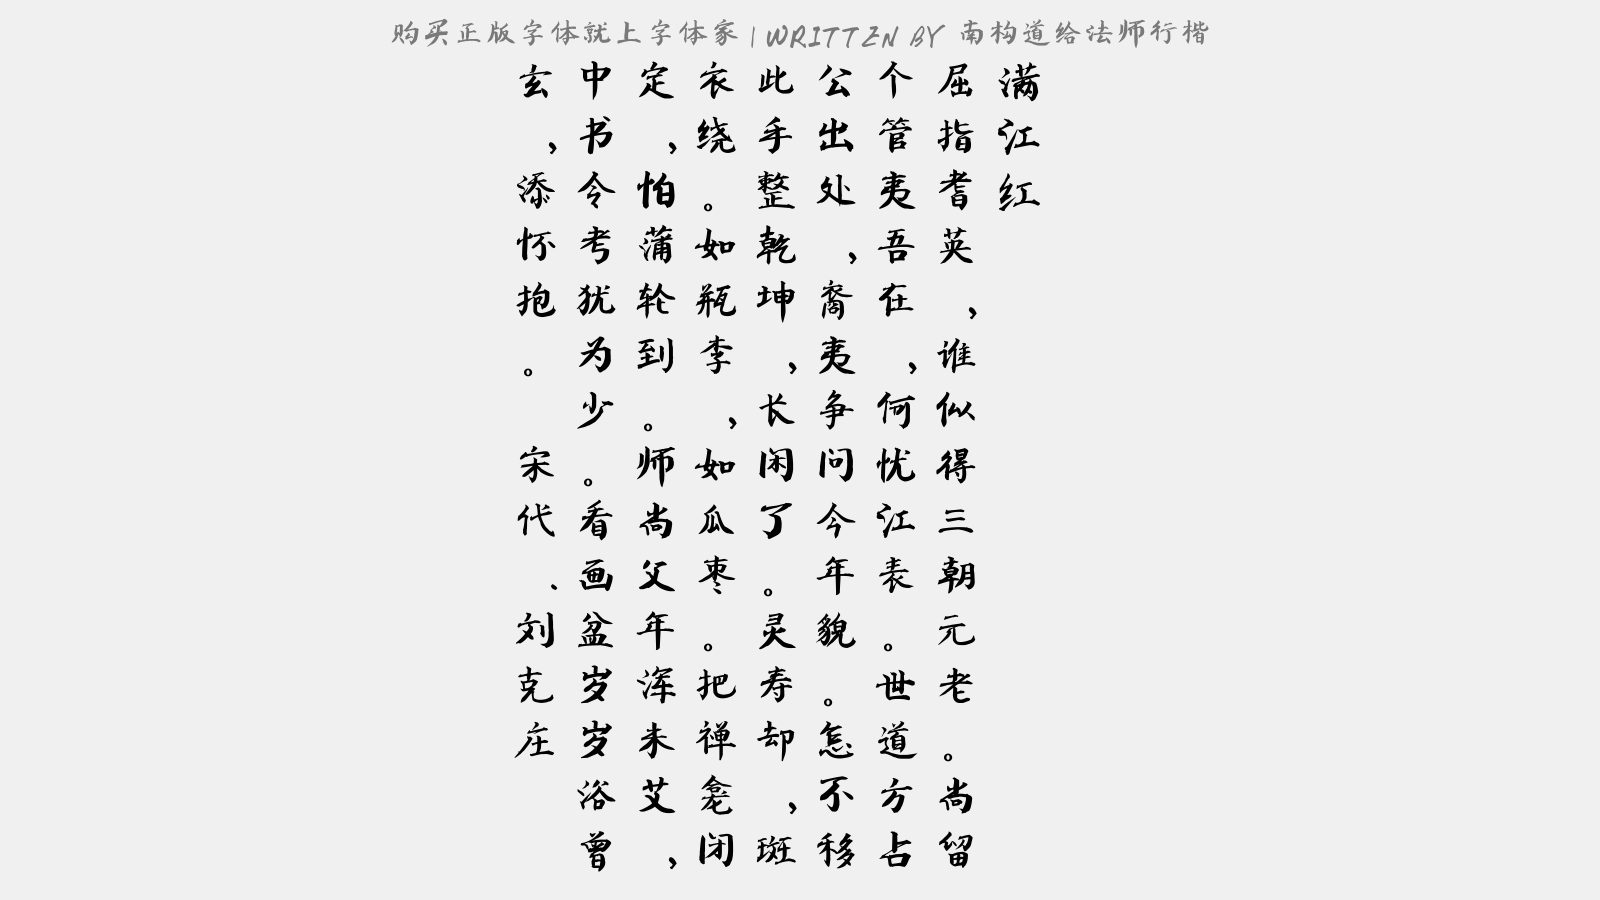 购买正版字体就上字体家 | WRITTEN BY 南构道给法师行楷
满江红
屈指耆英，谁似得三朝元老。尚留
个管夷吾在，何忧江表。世道方占
公出处，裔夷争问今年貌。怎不移
此手整乾坤，长闲了。灵寿却，斑
衣绕。如瓶李，如瓜枣。把禅龛闭
定，怕蒲轮到。师尚父年浑未艾，
中书令考犹为少。看画盆岁岁浴曾
玄，添怀抱。宋代、刘克庄